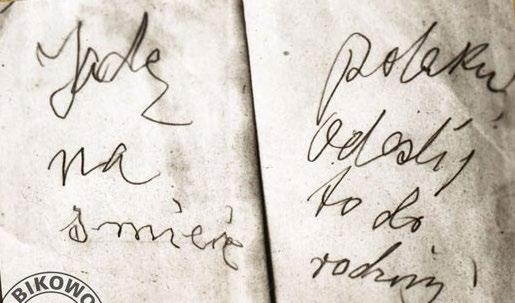 Jadę
na
śmierć
polaku
odeslij
to do
rodziny
BIKOWO